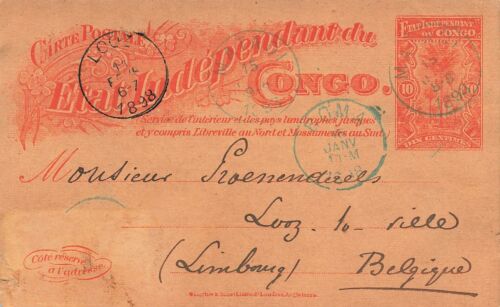 CARTE POSTALE
État Indépendant du
CONGO.
Service de l'intérieur et des pays limitrophes jusques
et y compris Libreville au Nord et Mossamedes au Sud
ETAT INDÉPENDANT
DU CONGO
10
10
DIX CENTIMES
1898
BOMA
JANV
Monsieur
Looz-la-ville
(Limbourg) Belgique
Côté réservé
à l'adresse